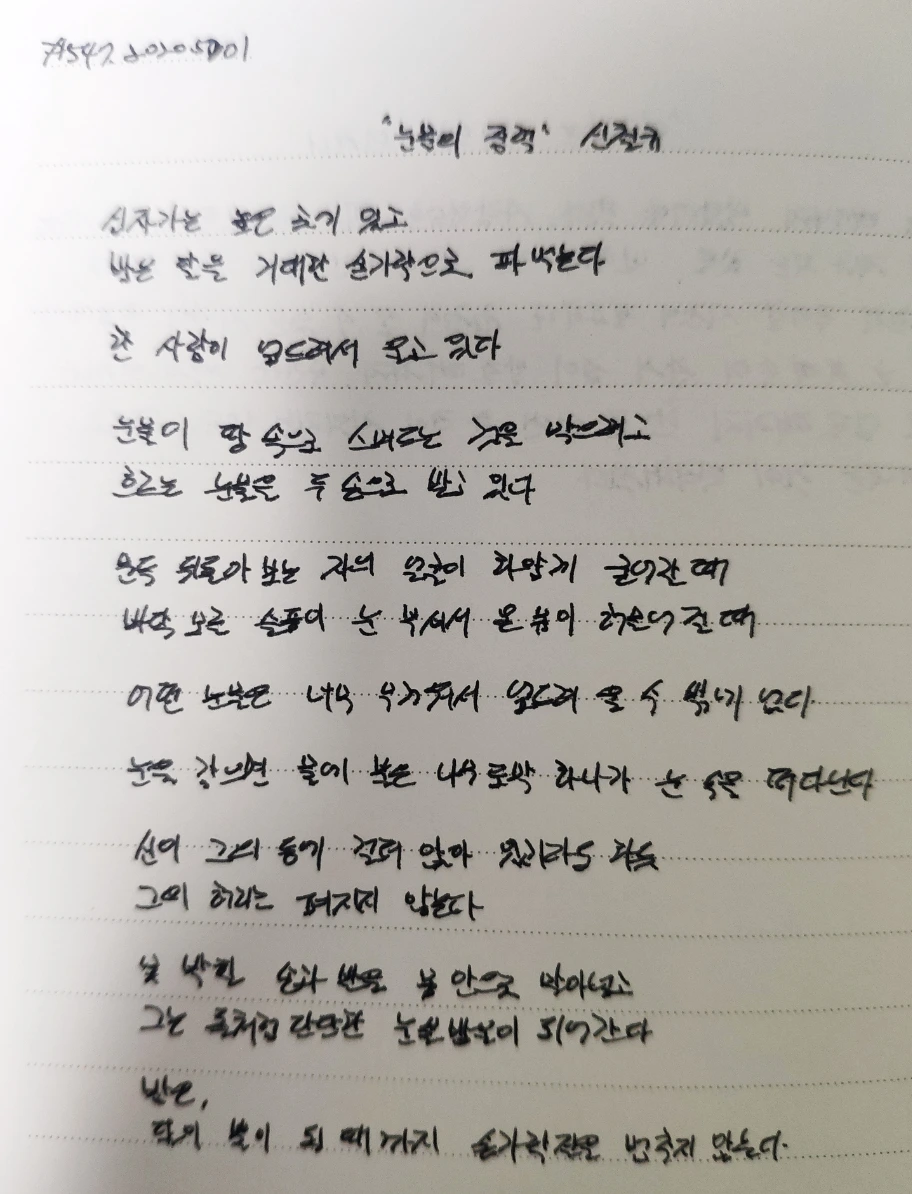 A547. 20205001
"눈물의 중력" 신철규
십자가는 높은 곳에 있고
밤은 달을 거대한 숟가락으로 파먹는다
한 사람이 엎드려서 울고 있다
눈물이 땅 속으로 스며드는 것을 막으려고
흐르는 눈물을 두 손으로 받고 있다
문득 뒤돌아 보는 자의 얼굴이 하얗게 굳어갈 때
바닥 모를 슬픔이 눈 부셔서 온 몸이 허물어질 때
어떤 눈물은 너무 무거워서 엎드려 울 수 밖에 없다.
눈을 감으면 물에 불은 나무토막 하나가 눈 속을 떠다닌다
신이 그의 등에 걸터 앉아 있기라도 하듯
그의 허리는 펴지지 않는다
못 박힌 손과 발을 몸 안으로 말아넣고
그는 돌처럼 단단한 눈물방울이 되어간다
밤은,
달이 뿔이 될 때까지 숟가락질을 멈추지 않는다.